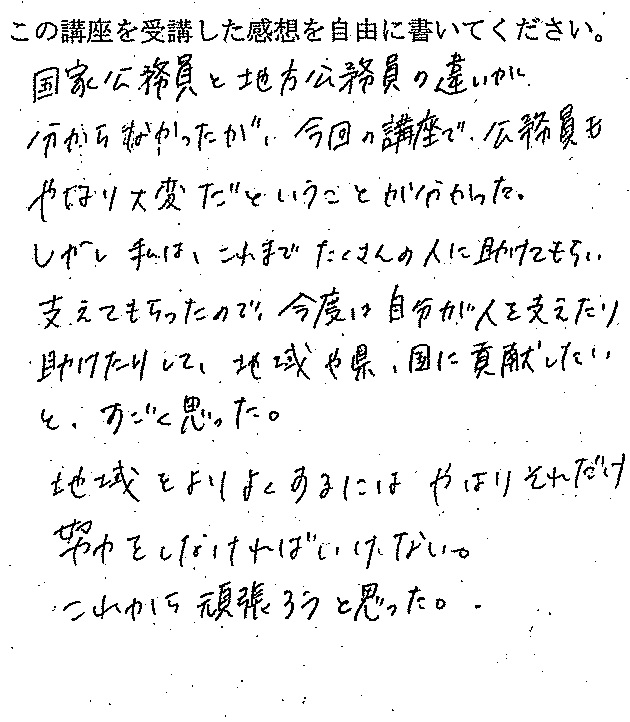 この講座を受講した感想を自由に書いてください。
国家公務員と地方公務員の違いが
分からなかったが、今回の講座で、公務員も
やはり大変だということが分かった。
しかし私は、これまでたくさんの人に助けてもらい
支えてもらったので、今度は自分が人を支えたり
助けたりして、地域や県、国に貢献したい
と、すごく思った。
地域をよりよくするにはやはりそれだけ
努力をしなければいけない。
これから頑張ろうと思った。